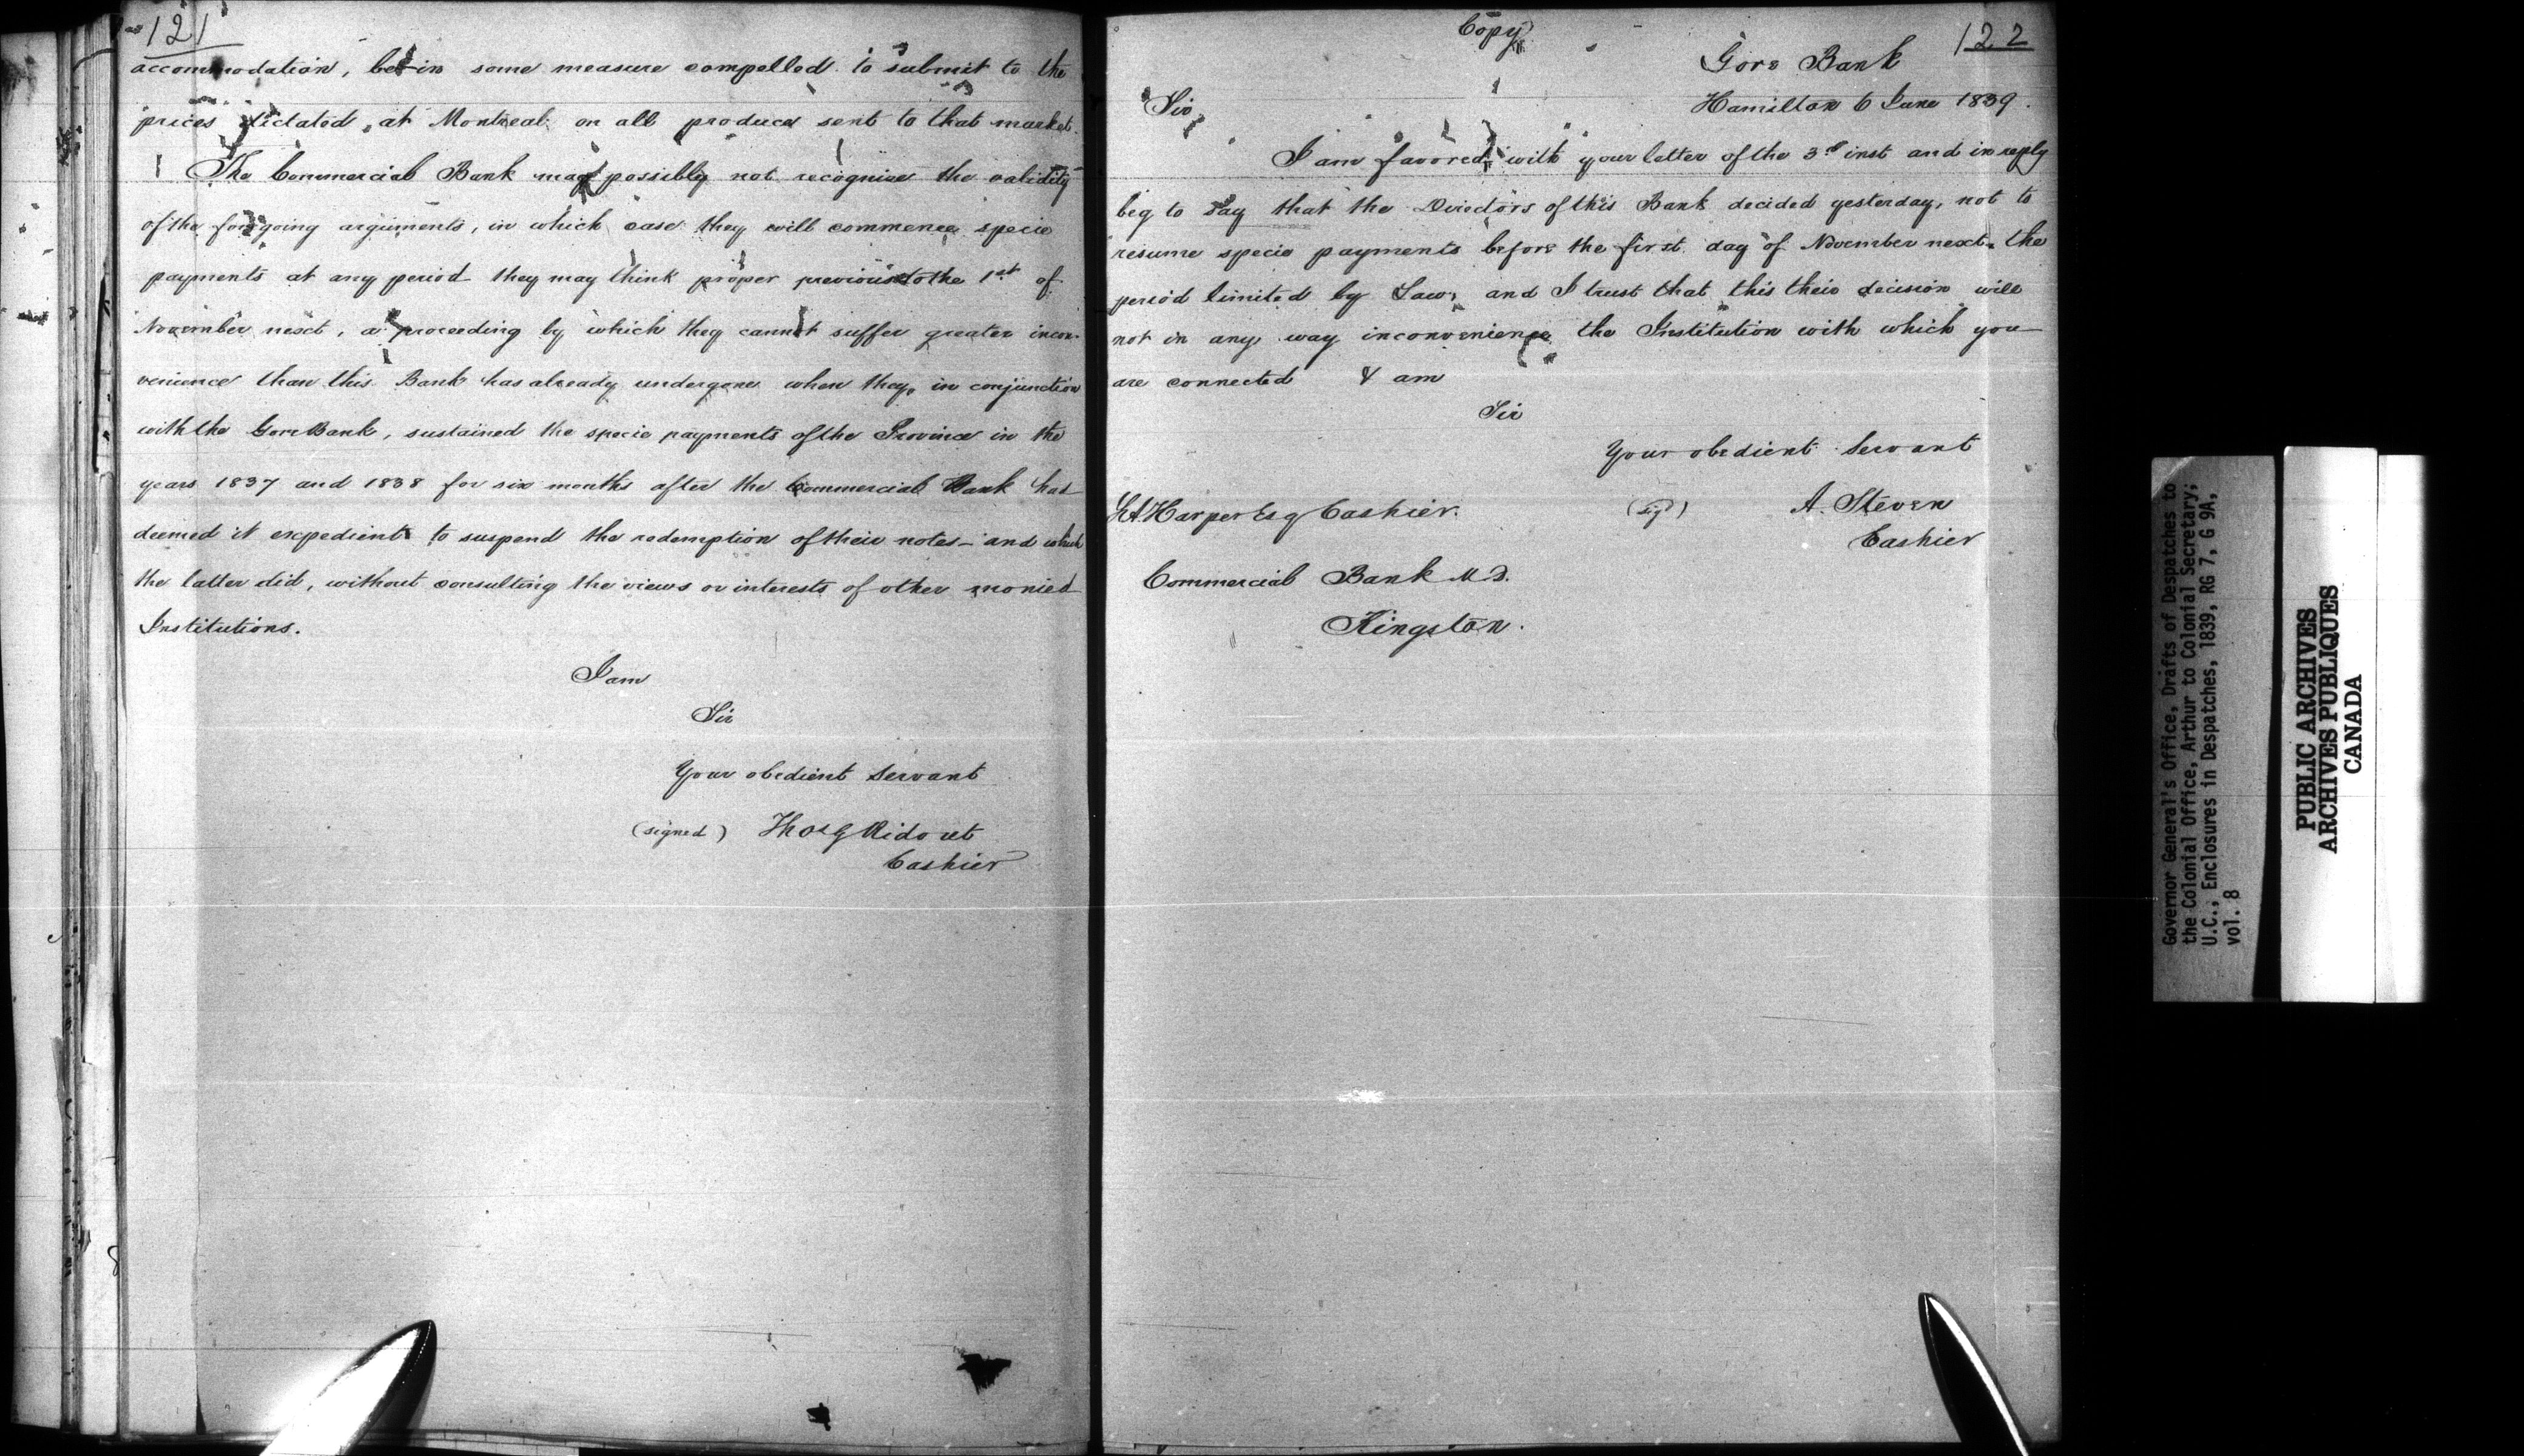 121
accommodation, be in some measure compelled to submit to the
prices dictated at Montreal on all produce sent to that market.
The Commercial Bank may possibly not recognise the validity
of the foregoing arguments, in which case they will commence specie
payments at any period they may think proper previous to the 1st of
November next, a proceeding by which they cannot suffer greater incon-
venience than this Bank has already undergone when they, in conjunction
with the Gore Bank, sustained the specie payments of the Province in the
years 1837 and 1838 for six months after the Commercial Bank had
deemed it expedient to suspend the redemption of their notes - and which
the latter did, without consulting the views or interests of other monied
Institutions.
I am
Sir
Your obedient Servant
(signed) Thos G Ridout
Cashier
Copy
122
Gore Bank
Hamilton 6 June 1839.
Sir
I am favored with your letter of the 3rd inst and in reply
beg to say that the Directors of this Bank decided yesterday, not to
resume specie payments before the first day of November next, the
period limited by Law, and I trust that this their decision will
not in any way inconvenience the Institution with which you
are connected & am
Sir
Your obedient Servant
(sigd) A. Steven
Cashier
Harper Esq Cashier.
Commercial Bank M.D.
Kingston.
Governor General's Office, Drafts of Despatches to
the Colonial Office, Arthur to Colonial Secretary;
U.C., Enclosures in Despatches, 1839, RG 7, G 9A,
vol. 8
PUBLIC ARCHIVES
ARCHIVES PUBLIQUES
CANADA